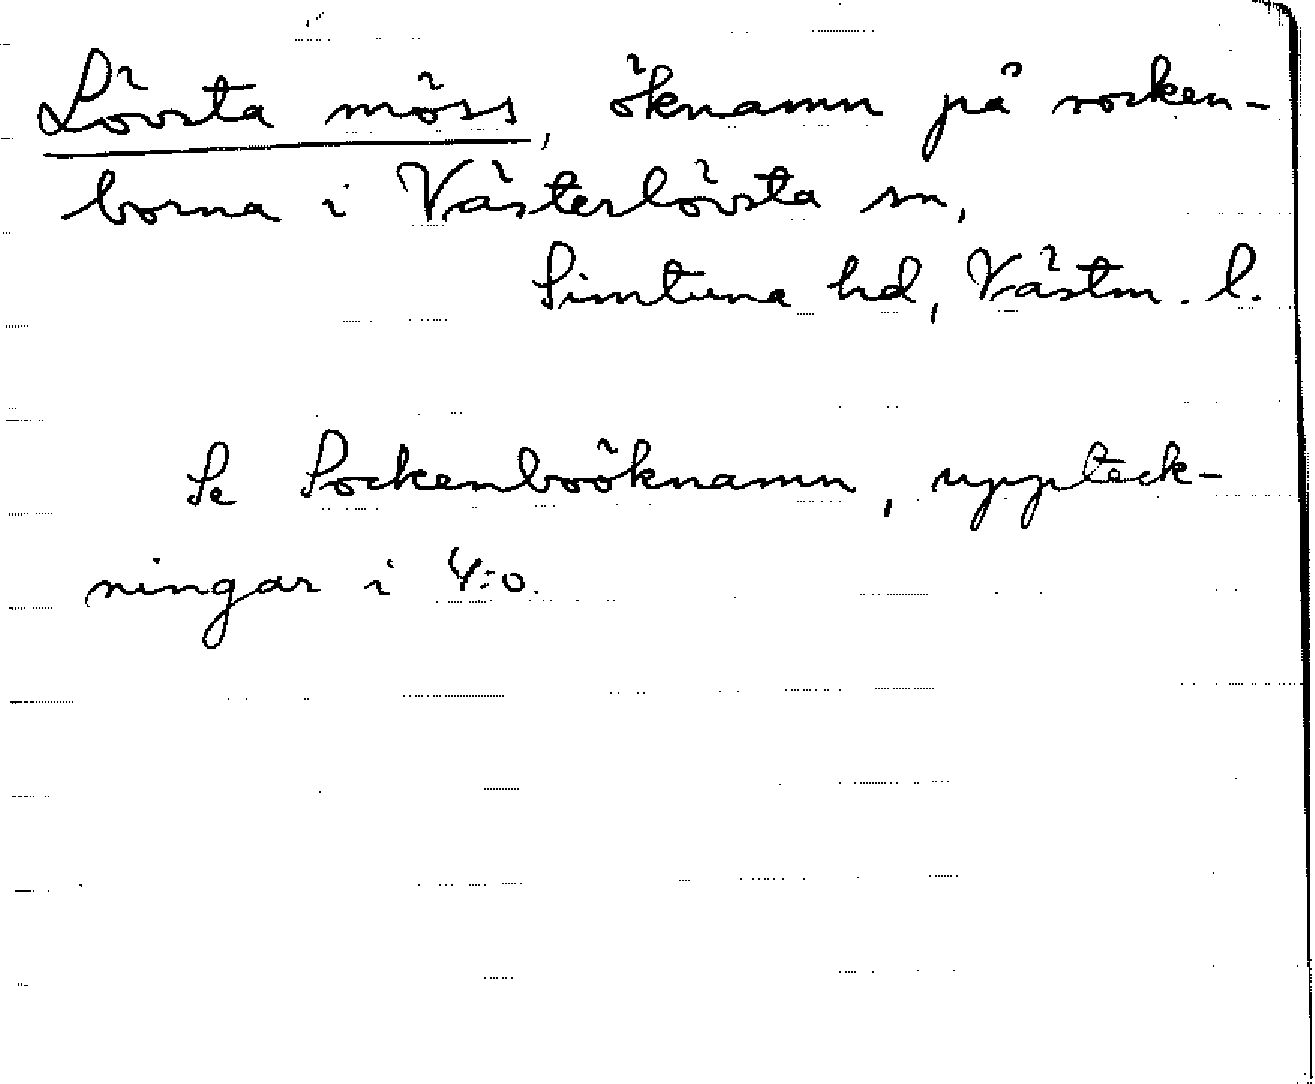 Lövsta möss, öknamn på socken-
borna i Västerlövsta sn,
Simtuna hd, Västm. l.
Se Sockenboöknamn, uppteck-
ningar i 4:o.